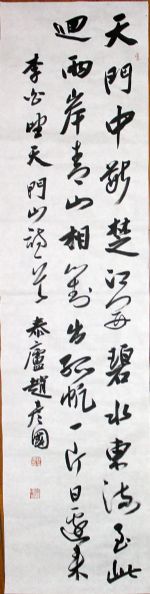 天門中斷楚江開碧水東流至此
迴兩岸青山相對出孤帆一片日邊來
李白望天門山詩意 泰廬趙彥國